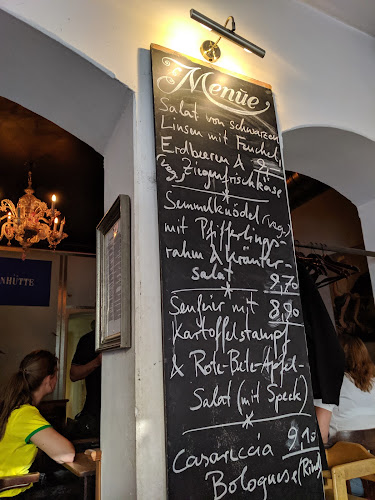 Menüe
Salat von schwarzen
Linsen mit Fenchel,
Erdbeeren & 9,-
Ziegenfrischkäse
Semmelknödel (veg.)
mit Pfifferlings-
rahm & Kräuter-
salat 9,70
Senfeier mit 8,90
Kartoffelstampf
& Rote-Bete-Apfel-
Salat (mit Speck)
Casareccia 9,10
Bolognese (Rind)
NHÜTTE